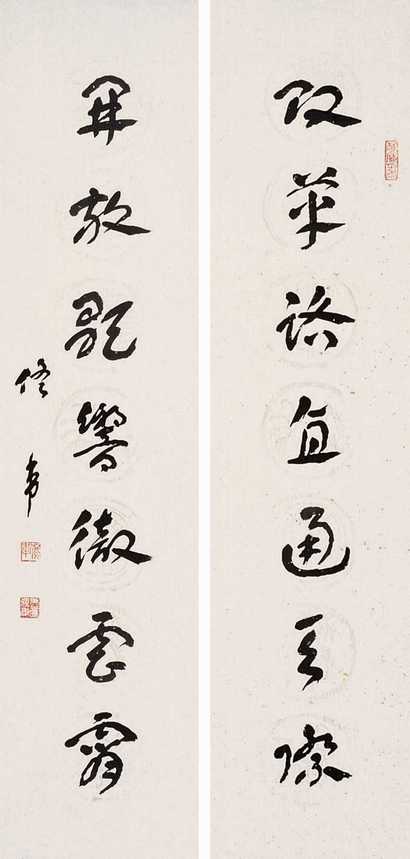 改革路直通天际
开放歌响彻云霄